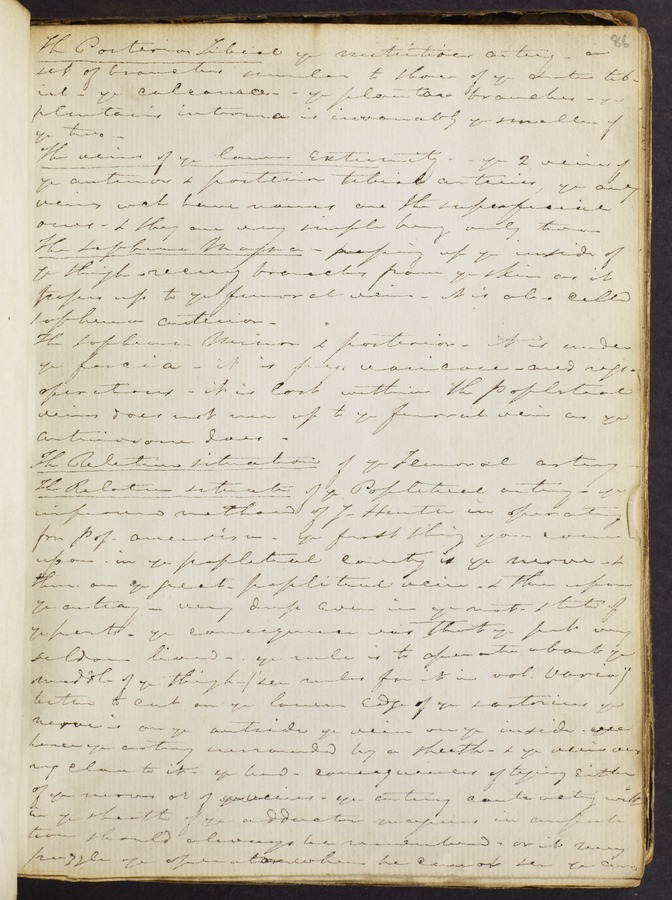 86
The Posterior Tibial ye nutritious artery - a
set of branches similar to those of ye anter tib-
ial - ye calcanea - ye plantar branches - ye
plantaris interna is invariably ye smaller of
ye two -
The veins of ye lower Extremity - ye 2 veins of
ye anterior & posterior tibial arteries, ye only
veins wch have names are the superficial
ones - & they are very simple being only two
The Saphena Magna - passing up ye inside of
ye thigh receives branches from ye skin as it
passes up to ye femoral vein - it is also called
saphena anterior -
The Saphena Minor & posterior - it is under
ye fascia - it is varicose and
operations - it is lost within the Popliteal
veins does not run up to ye femoral vein as ye
anterior one does -
The Relative situation of ye Femoral artery -
The Relative situate of ye Popliteal artery - ye
improved method of J. Hunter in operating
for Pop. aneurism - ye first thing you come
upon in ye popliteal cavity is ye nerve - &
then on ye great popliteal vein - & then upon
ye artery - very deep even in ye nat. state of
ye parts - ye consequence was that ye pat very
seldom lived - ye rule is to operate about ye
middle of ye thigh - (see rules for it in vol. Varia)
better to cut on ye lower Edge of ye sartorius ye
nerve is on ye outside ye vein on ye inside -
hence ye artery surrounded by a sheath - & ye veins
close to it - ye bad - consequences of tying Either
of ye nerves or of ye veins - ye artery
in ye sheath of ye adductor magnus in
should always be remembered - or it may
puzzle ye operator when he cannot see ye